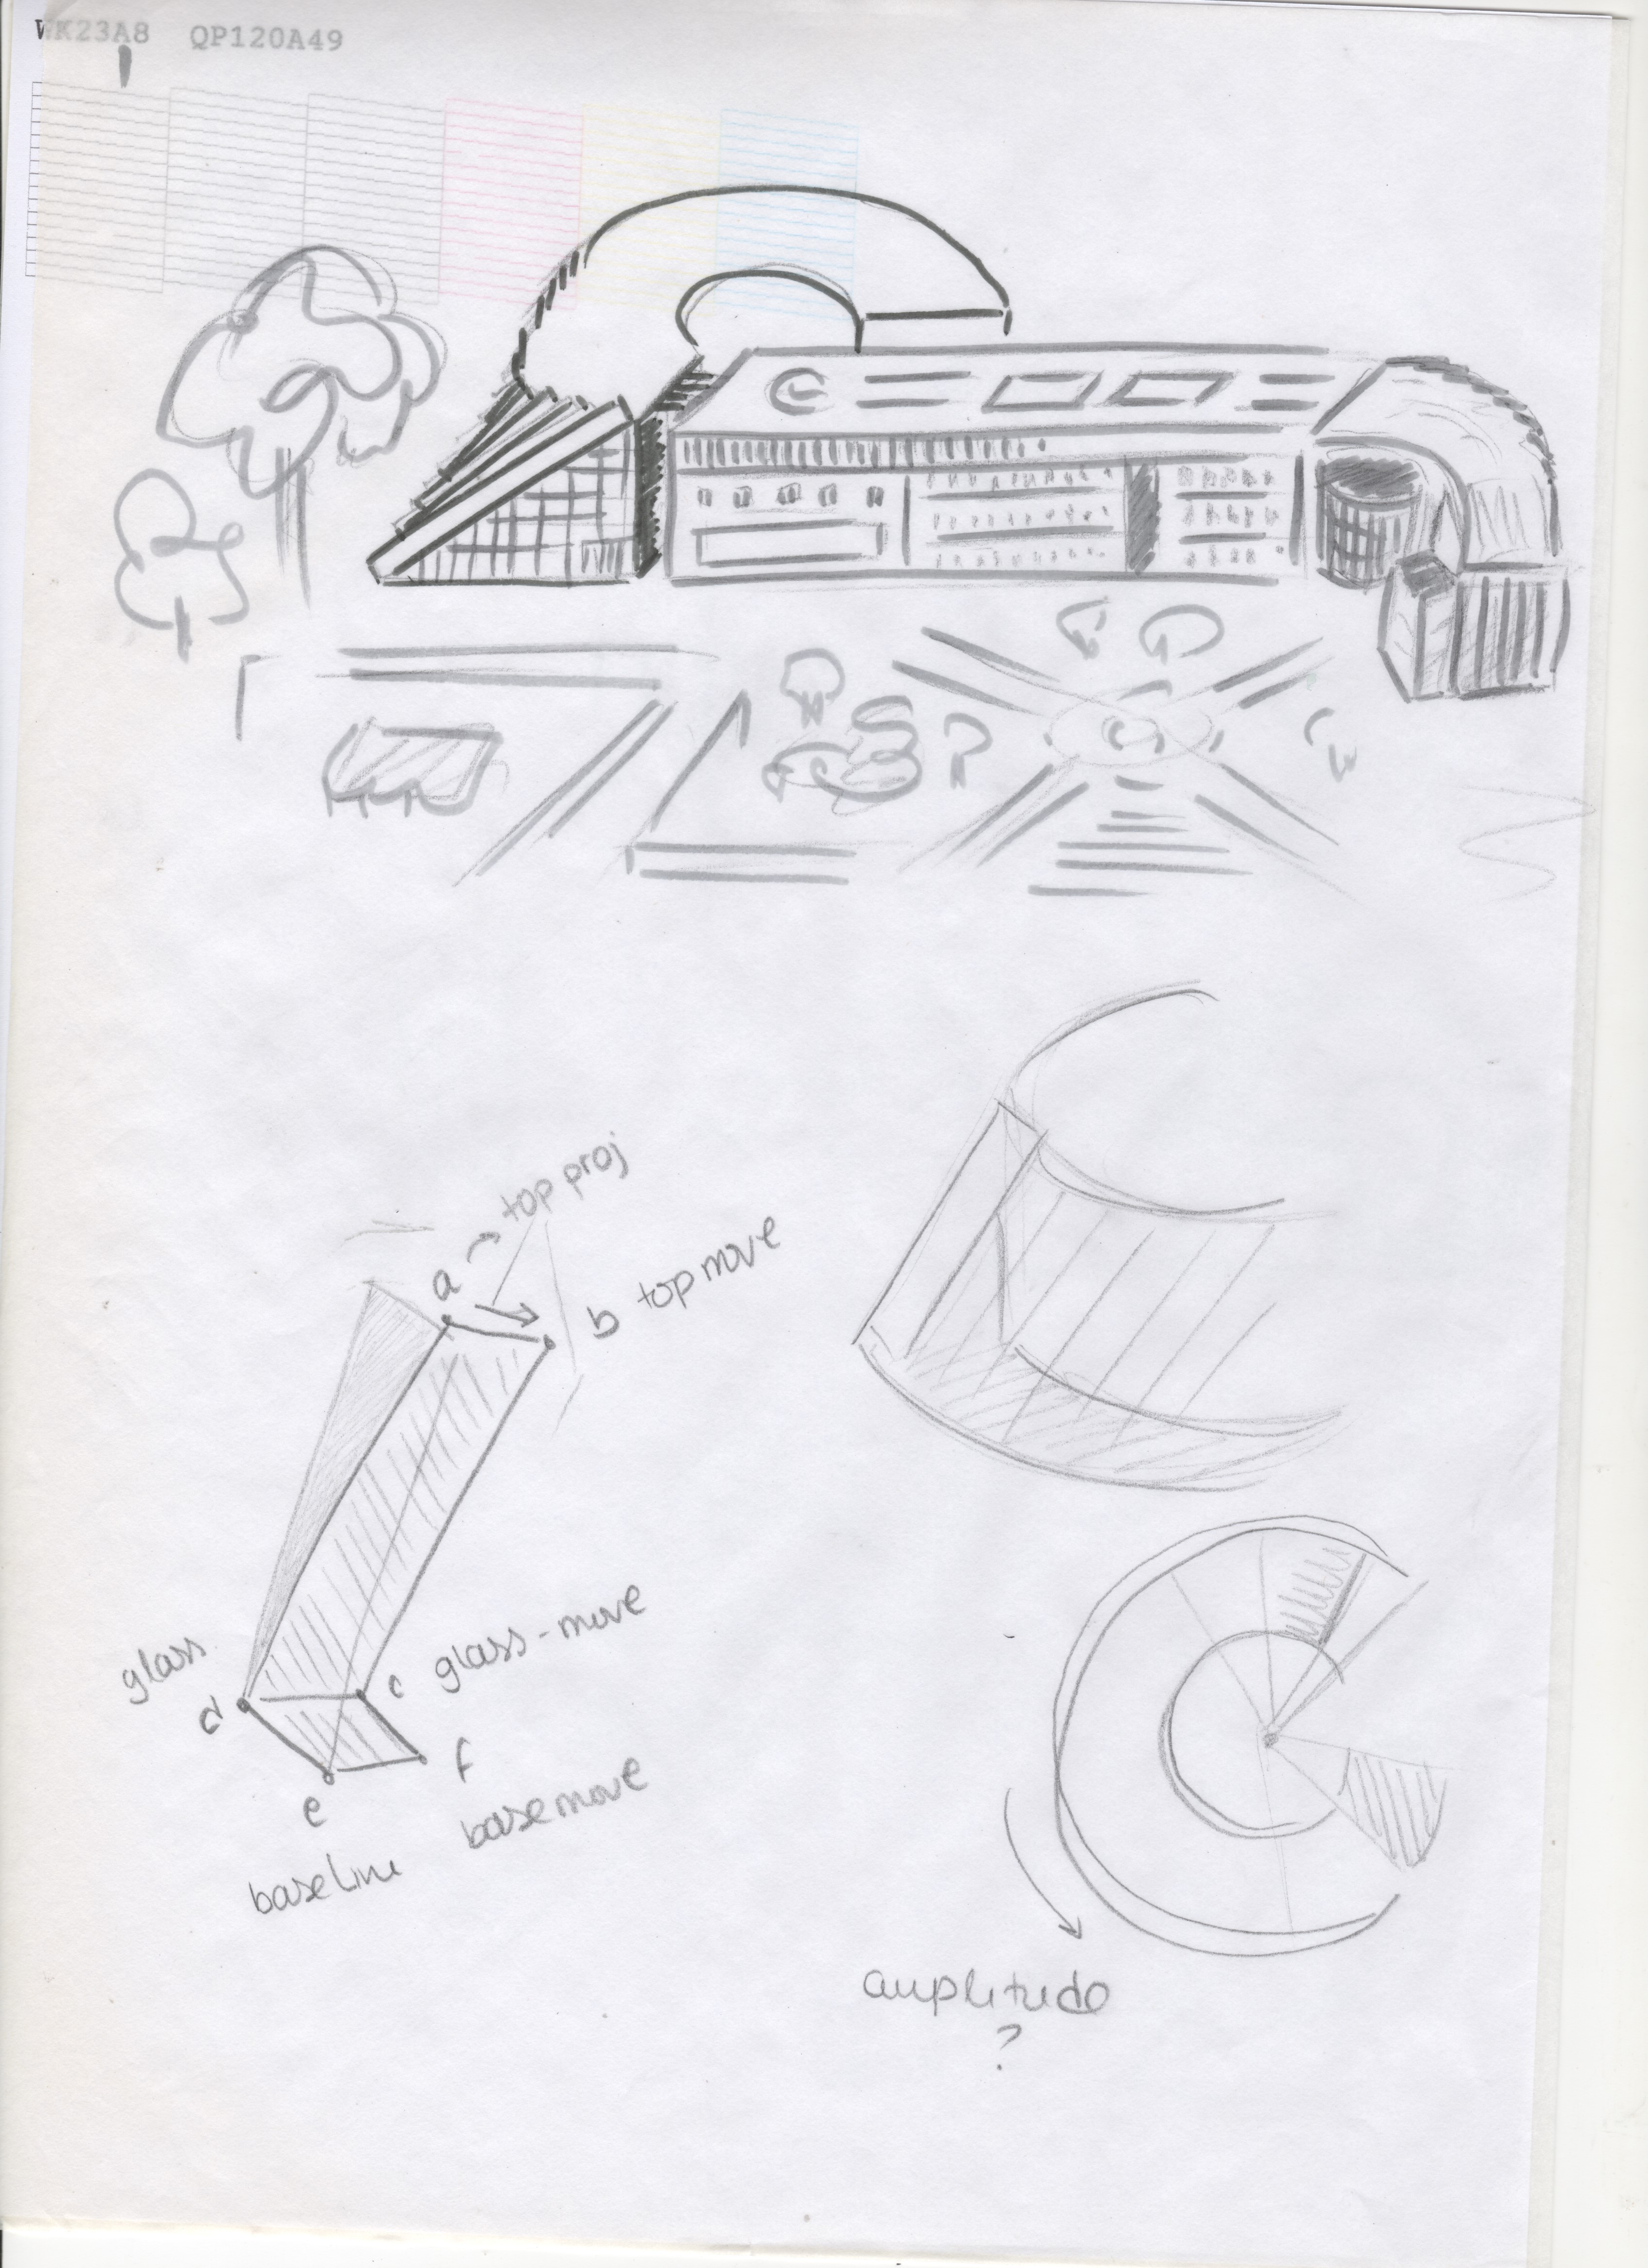 WK23A8 QP120A49
top proj
a
b top move
glass
d
c glass-move
f
e
base move
baseline
amplitude
?